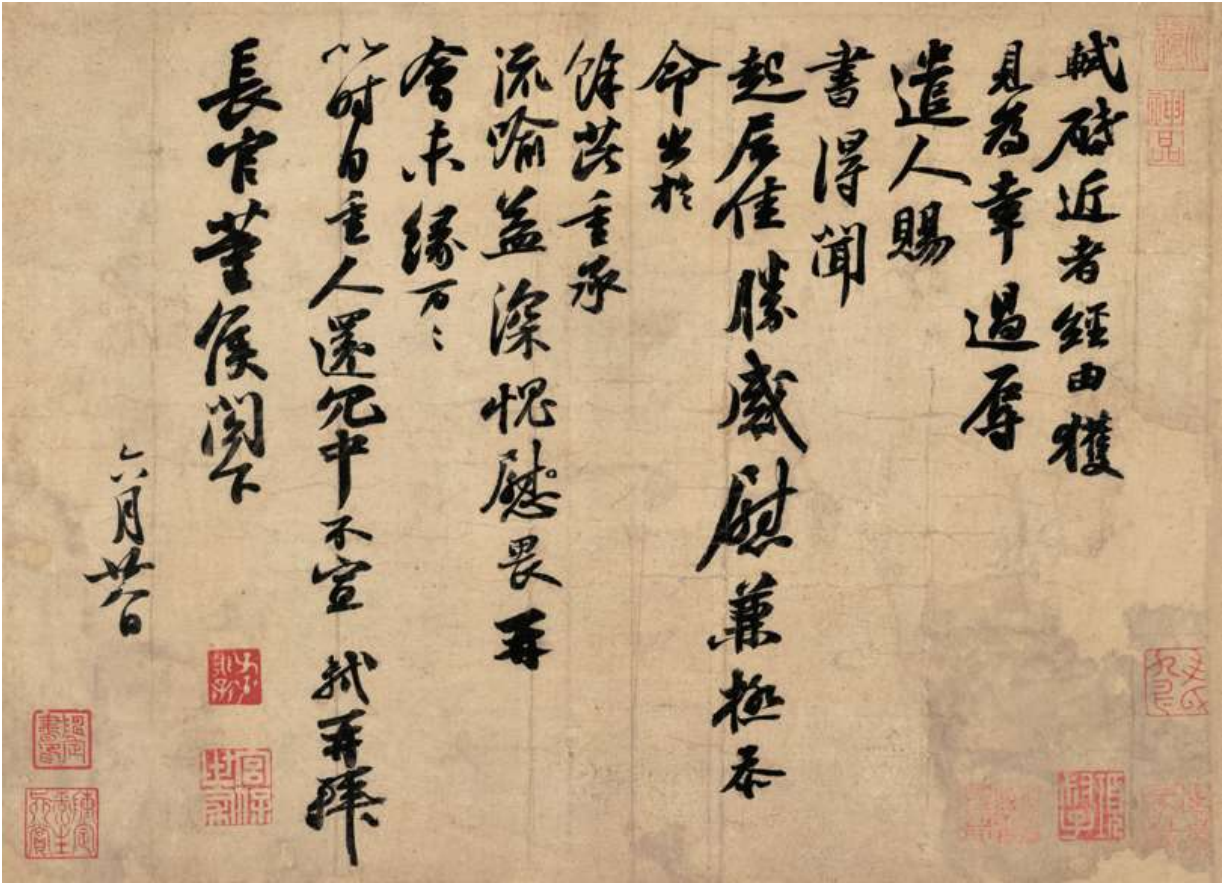 軾啓近者經由獲
見為幸過辱
遣人賜
書得聞
起居佳勝感慰兼極忝
命出於
餘芘重承
流喻益深愧慰畏再
會未緣万〻
以时自重人還冗中不宣 軾再拜
長官董侯閤下
六月廿八日
神品